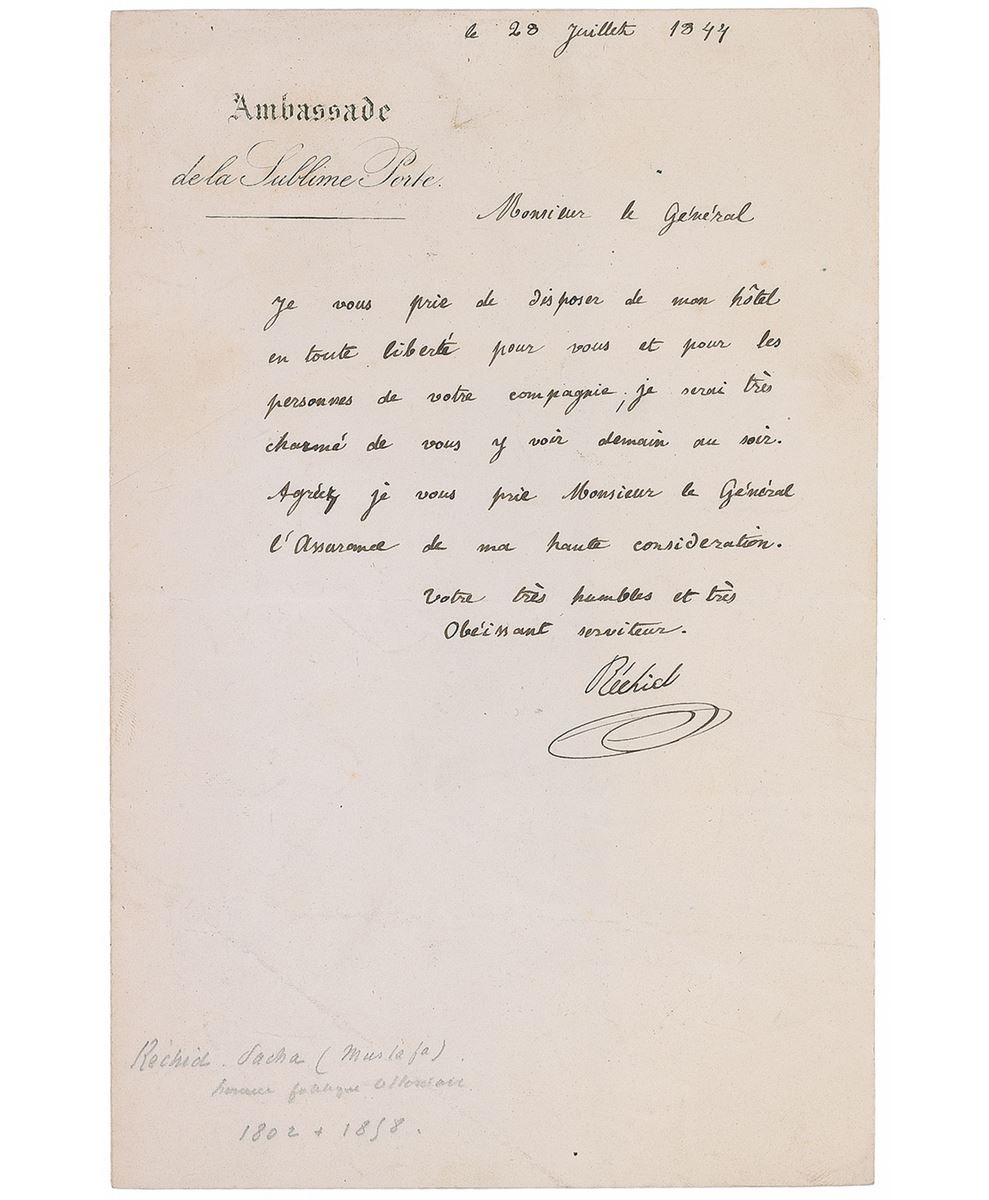 le 28 Juillet 1844
Ambassade
de la Sublime Porte.
Monsieur le Général
Je vous prie de disposer de mon hôtel
en toute liberté pour vous et pour les
personnes de votre compagnie, je serai très
charmé de vous y voir demain au soir.
Agréez je vous prie Monsieur le Général
l'Assurance de ma haute consideration.
Votre très humbles et très
Obéissant serviteur.
Réchid
Réchid Pacha (Mustafa).
homme politique Ottoman
1802 + 1858.